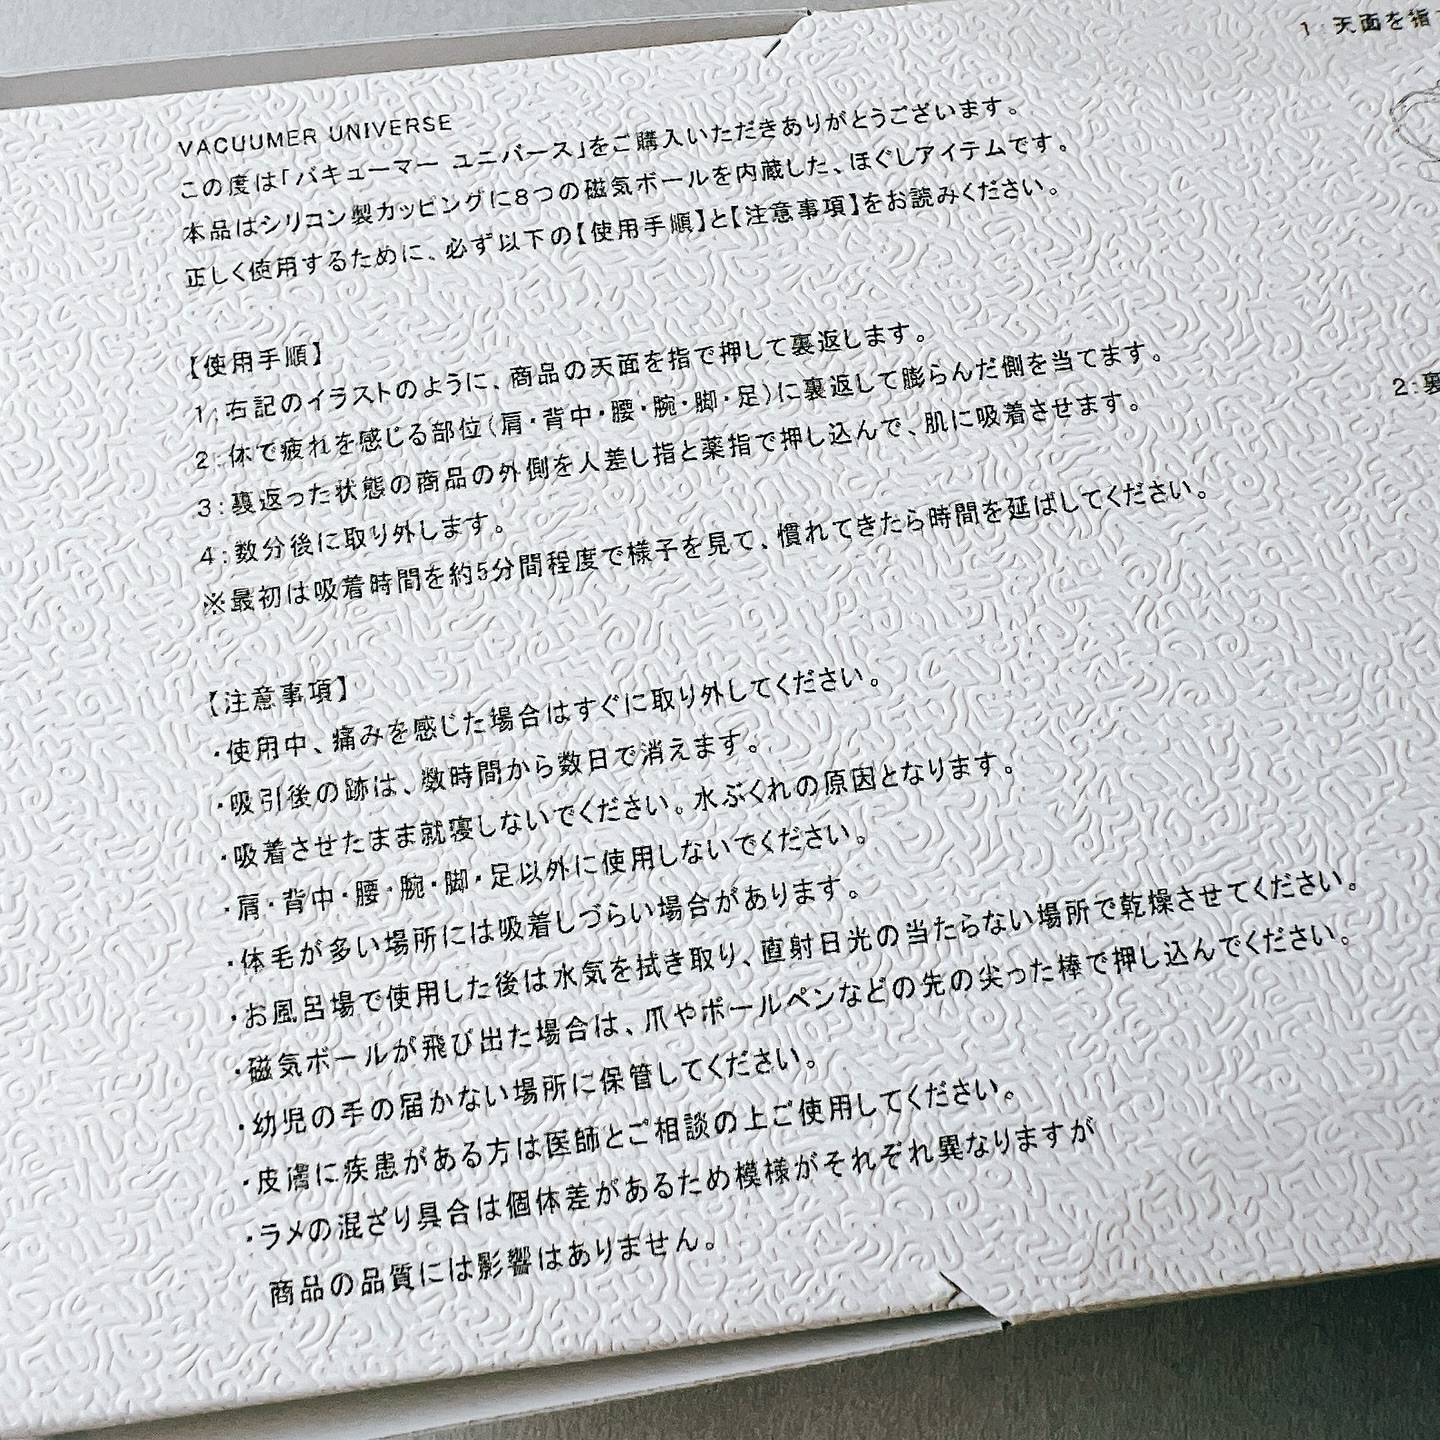 VACUUMER UNIVERSE
この度は「バキューマー ユニバース」をご購入いただきありがとうございます。
本品はシリコン製カッピングに8つの磁気ボールを内蔵した、ほぐしアイテムです。
正しく使用するために、必ず以下の【使用手順】と【注意事項】をお読みください。
【使用手順】
1:右記のイラストのように、商品の天面を指で押して裏返します。
2:体で疲れを感じる部位(肩・背中・腰・腕・脚・足)に裏返して膨らんだ側を当てます。
3:裏返った状態の商品の外側を人差し指と薬指で押し込んで、肌に吸着させます。
4:数分後に取り外します。
※最初は吸着時間を約5分間程度で様子を見て、慣れてきたら時間を延ばしてください。
【注意事項】
・使用中、痛みを感じた場合はすぐに取り外してください。
・吸引後の跡は、数時間から数日で消えます。
・吸着させたまま就寝しないでください。水ぶくれの原因となります。
・肩・背中・腰・腕・脚・足以外に使用しないでください。
・体毛が多い場所には吸着しづらい場合があります。
・お風呂場で使用した後は水気を拭き取り、直射日光の当たらない場所で乾燥させてください。
・磁気ボールが飛び出た場合は、爪やボールペンなどの先の尖った棒で押し込んでください。
・幼児の手の届かない場所に保管してください。
・皮膚に疾患がある方は医師とご相談の上ご使用してください。
・ラメの混ざり具合は個体差があるため模様がそれぞれ異なりますが
商品の品質には影響はありません。
1:天面を指で
2:裏